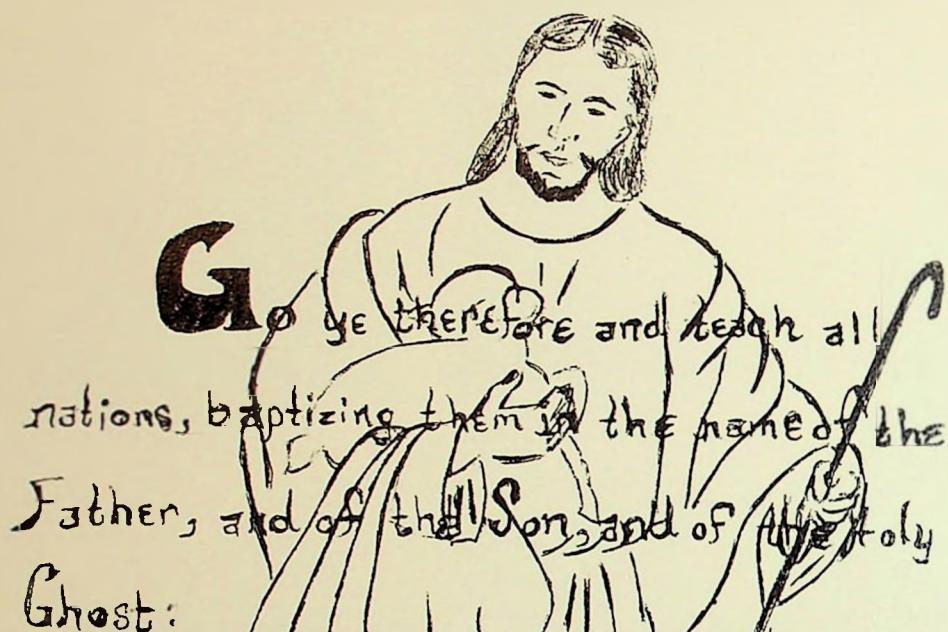 Go ye therefore and teach all
nations, baptizing them in the name of the
Father, and of the Son, and of the Holy
Ghost: